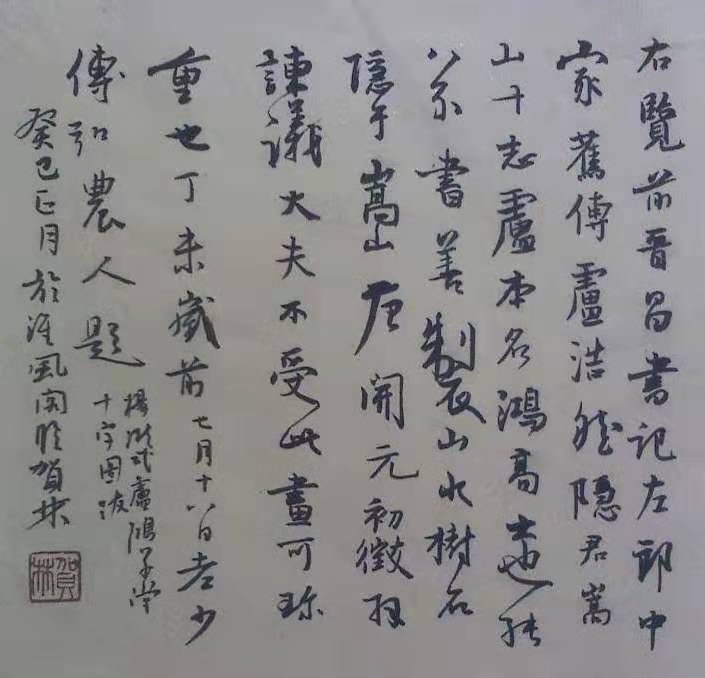 右覽前晋昌書記左郎中
家舊傳盧浩然隱君嵩
山十志盧本名鴻高士也能
八分書善製山水樹石
隱于嵩山唐開元初徵拜
諫議大夫不受此畫可珍
重也丁未歲前七月十八日老少
傅弘農人題
楊凝式盧鴻草堂
十字圖跋
癸巳正月於淮風閣臨賀林
賀林